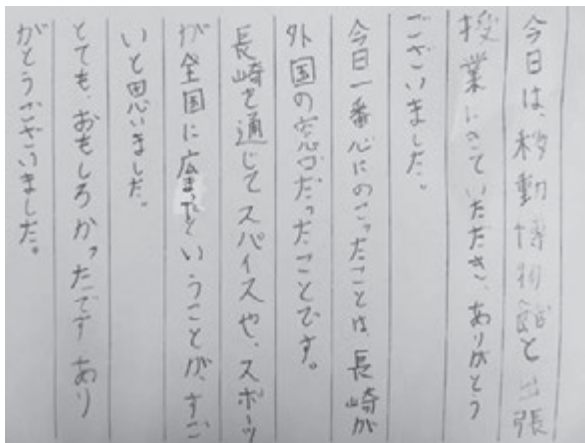 今日は、移動博物館と出張
授業にきていただき、ありがとう
ございました。
今日一番心にのこったことは、長崎が
外国の窓口だったことです。
長崎を通じてスパイスや、スポーツ
が全国に広まったということが、すご
いと思いました。
とても、おもしろかったです あり
がとうございました。